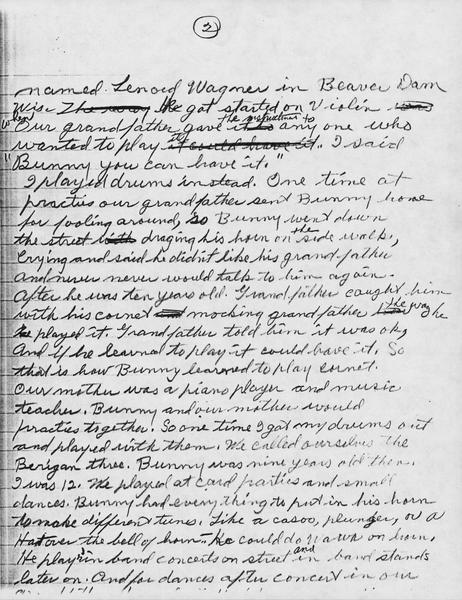 2
named Lenord Wagner in Beaver Dam
Wisc he got started on Violin
When Our grandfather gave the instrument to any one who
wanted to play it. I said
"Bunny you can have it."
I played drums instead. One time at
practis our grandfather sent Bunny home
for fooling around, so Bunny went down
the street draging his horn on the side walk,
Crying and said he didn't like his grandfather
and never never would talk to him again.
After he was ten years old. Grandfather caught him
with his cornet mocking grandfather the way he
played it. Grandfather told him it was ok,
And if he learned to play it could have it. So
that is how Bunny learned to play cornet.
Our mother was a piano player and music
teacher. Bunny and our mother would
practies together. So one time I got my drums out
and played with them. We called ourselves the
Berigan three. Bunny was nine years old then.
I was 12. We played at card parties and small
dances. Bunny had every thing to put in his horn
to make different tunes. Like a casoo, plunger, or a
Hat over the bell of horn. He could do wa wa on horn.
He played in band concerts on street and in band stands
later on. And for dances after concert in our